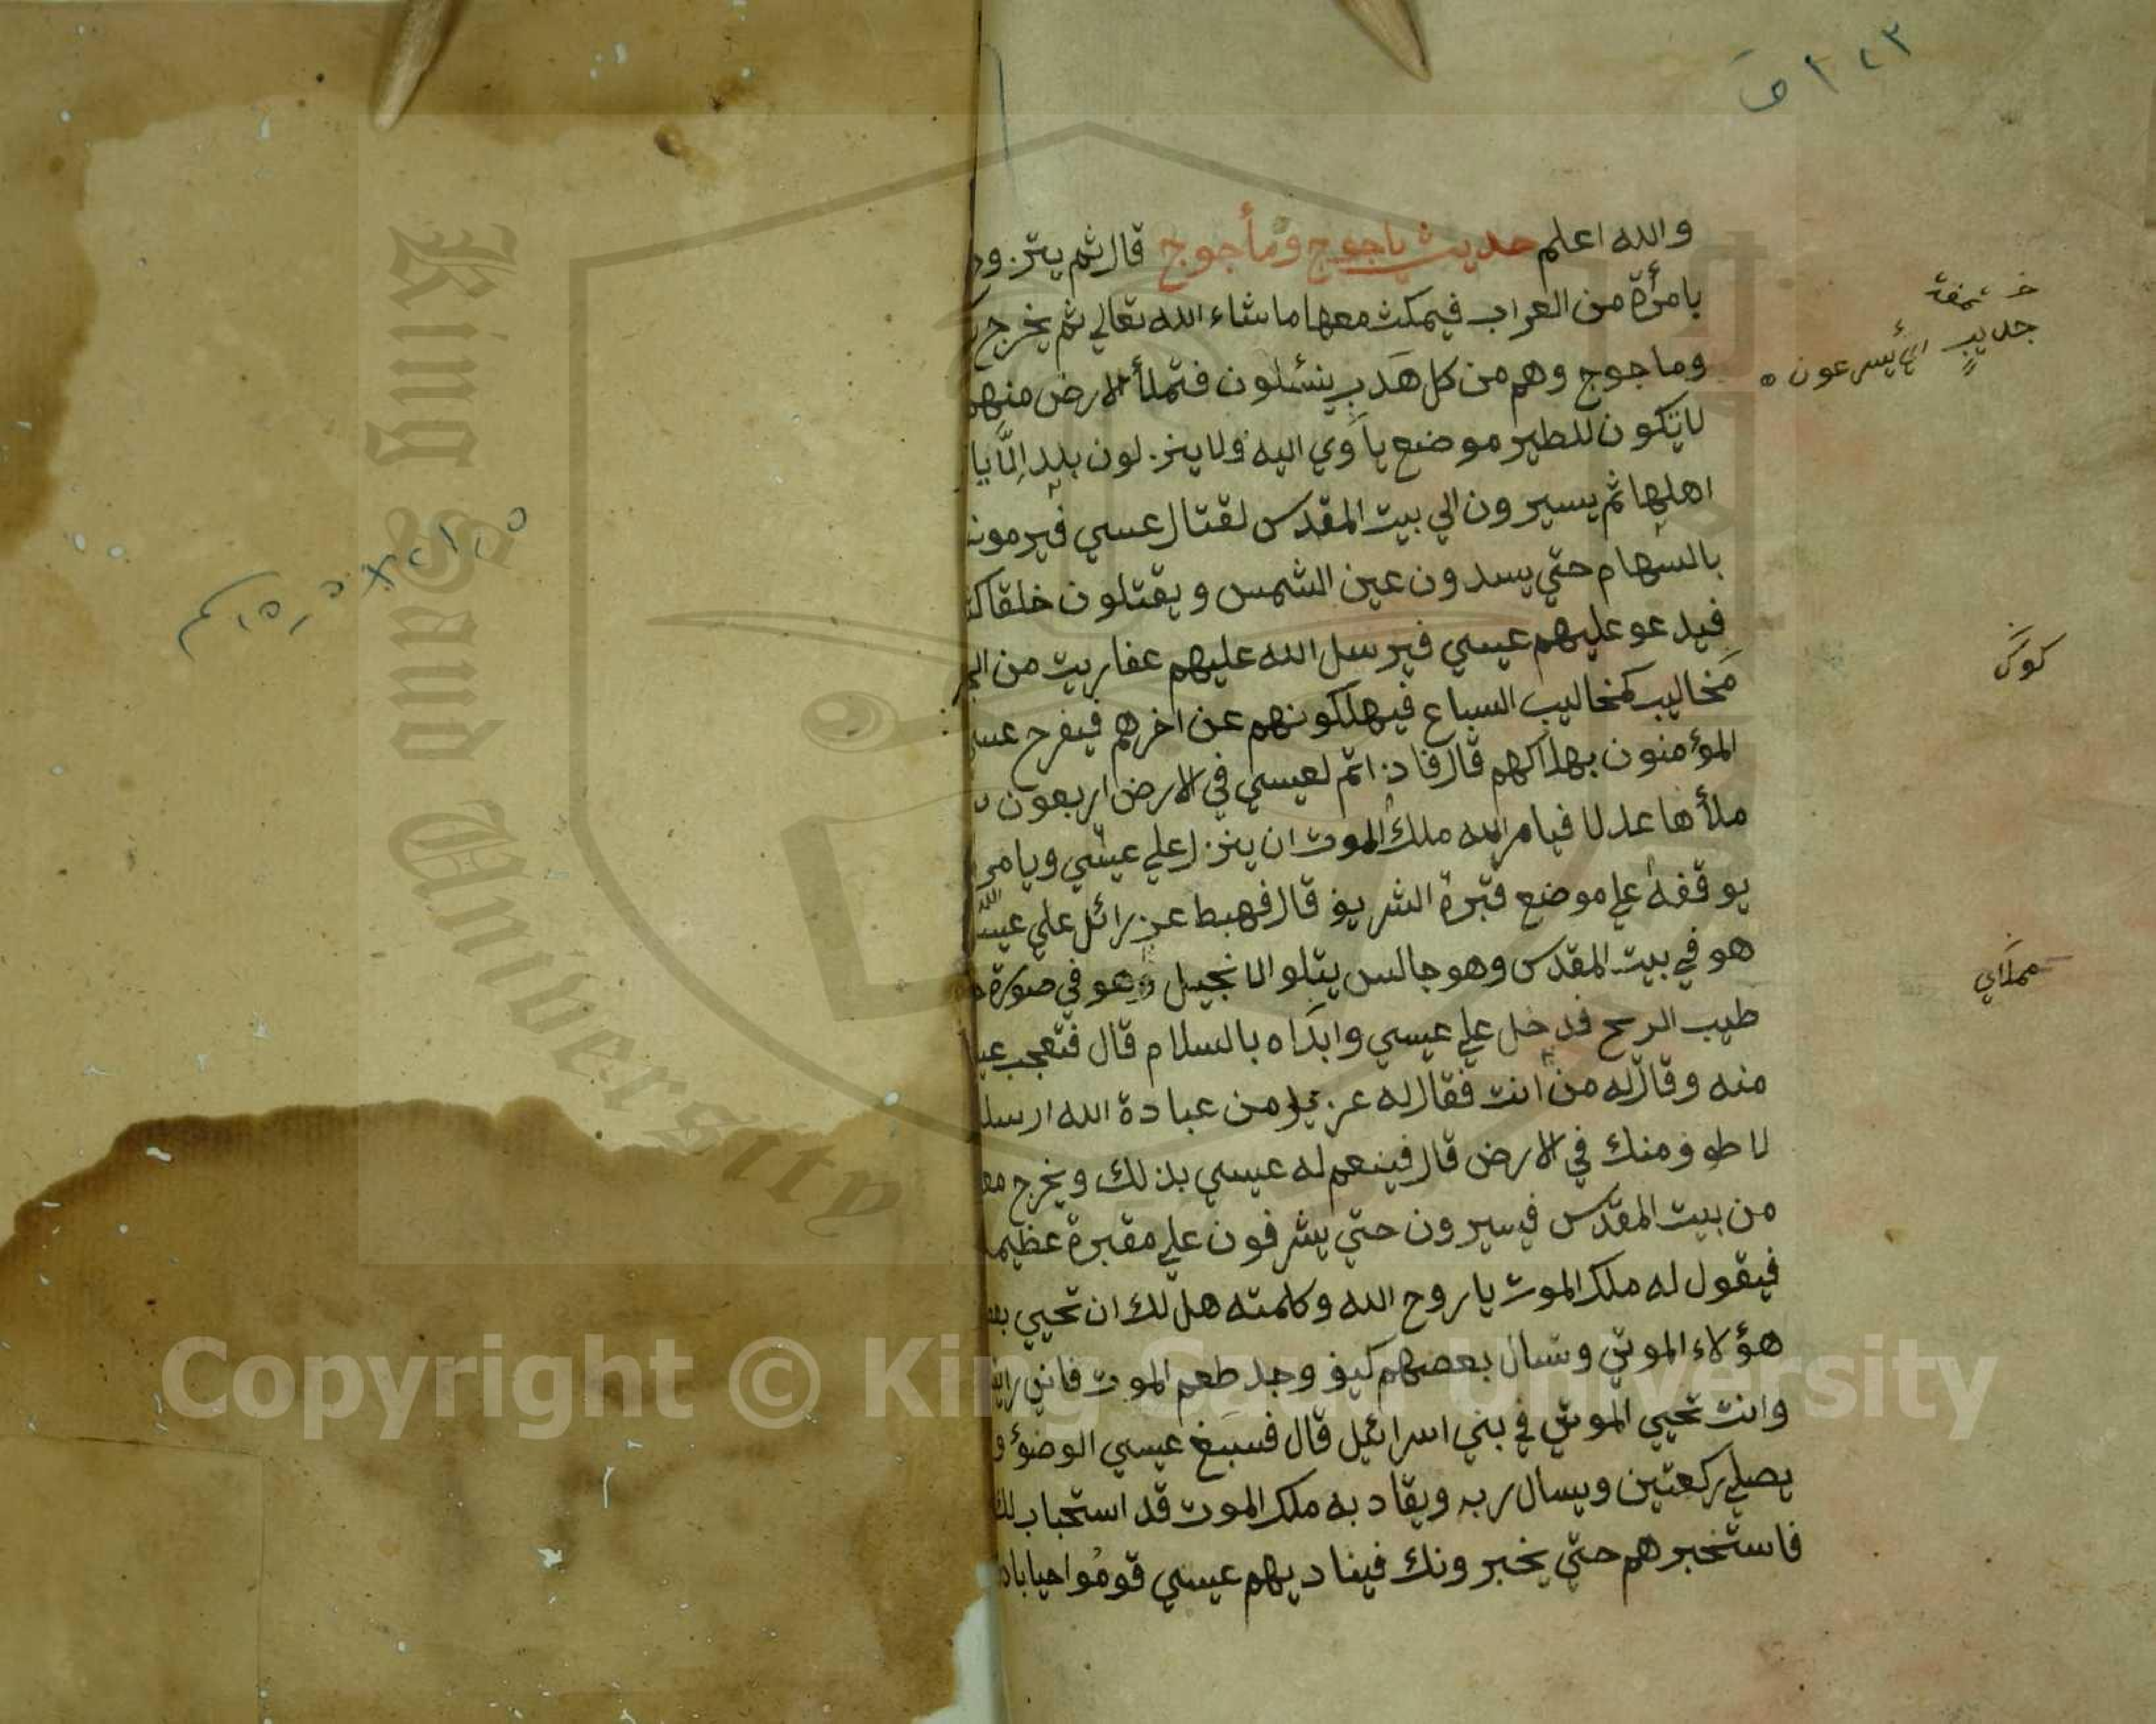 والله اعلم حديث ياجوج ومأجوج قال ثم يتزود
بامرأة من العراب فيمكث معها ما شاء الله تعالي ثم يخرج
وماجوج وهم من كل هدب ينسلون فتملأ الارض منهم
لا يكون للطير موضع يأوي اليه ولا ينزلون بلد الا
اهلها ثم يسيرون الي بيت المقدس لقتال عسي فيرمونه
بالسهام حتي يسدون عين الشمس ويقتلون خلقا
فيدعو عليهم عيسي فيرسل الله عليهم عفاريت من
مخاليب كمخاليب السباع فيهلكونهم عن اخرهم فيفرح
المؤمنون بهلاكهم قال فاذا تم لعيسي في الارض اربعون
ملأها عدلا فيامر الله ملك الموت ان ينزل علي عيسي ويامر
يوقفه علي موضع قبره الشريف قال فهبط عزرائل علي
هو في بيت المقدس وهو جالس يتلوا الانجيل وهو في صورة
طيب الريح فدخل علي عيسي وابداه بالسلام قال فتعجب
منه وقال له من انت فقال له من عبادة الله
لاطوف منك في الارض قال فينعم له عيسي بذلك ويخرج
من بيت المقدس فيسيرون حتي يشرفون علي مقبرة عظيمة
فيقول له ملك الموت يا روح الله وكلمته هل لك ان تحيي
هؤلاء الموتي وتسال بعضهم كيف وجد طعم الموت فاني
وانت تحيي الموتي في بني اسرائيل قال فسبغ عيسي الوضؤ و
يصلي ركعتين ويسال ربه ويقاد به ملك الموت قد استجاب لك
فاستخبرهم حتي يخبرونك فيناديهم عيسي قوموا
اي يسرعون
King Saud University
Copyright © King Saud University